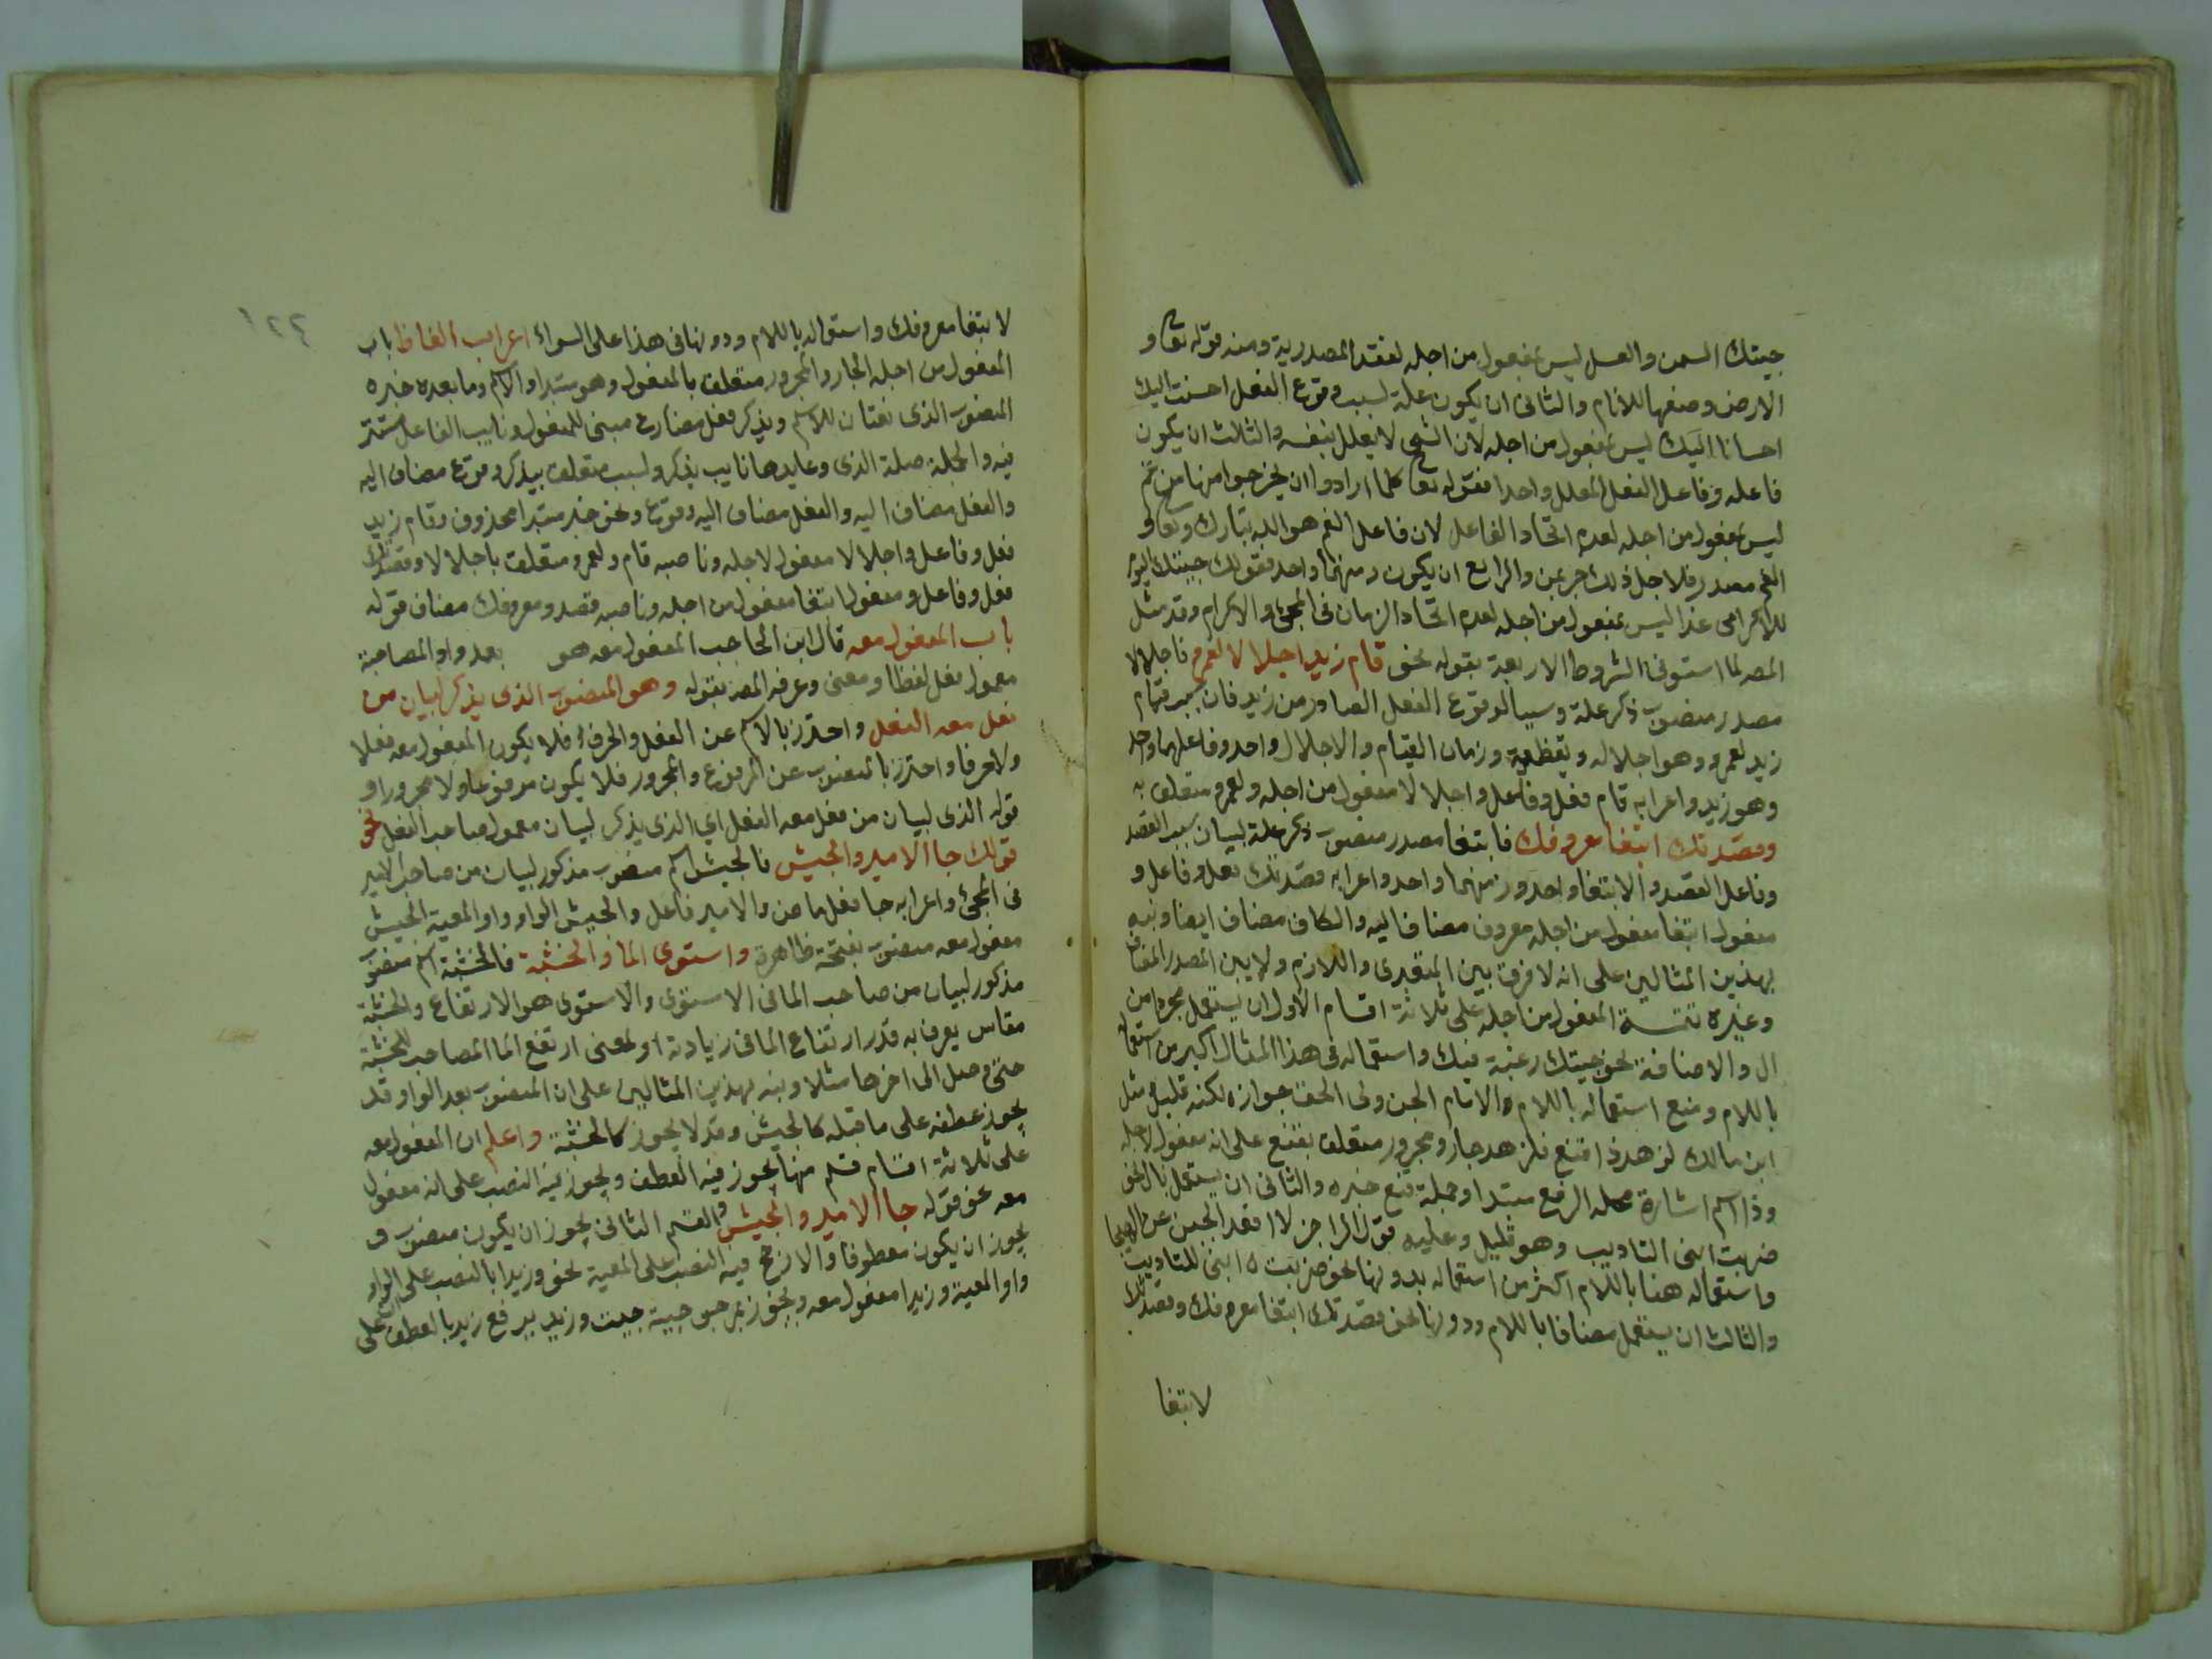 جيتك السمن والعسل ليس بمفعول من اجله لفقد المصدرية ومنه قوله تعا و
الارض وضعها للانام والثانى ان يكون علة لسبب وقوع الفعل احسنت اليك
احسانا اليك ليس بمفعول من اجله لان الشى لا يعلل بنفسه والثالث ان يكون
فاعله وفاعل الفعل المعلل واحدا فقوله تعا كلما ارادوا ان يخرجوا منها من غم
ليس بمفعول من اجله لعدم اتحاد الفاعل لان فاعل الغم هو الله تبارك وتعالى
الغم مصدر فلاجل ذلك جر بمن والرابع ان يكون زمنهما واحد فقولك جيتك اليوم
للاكرامى غدا ليس بمفعول من اجله لعدم اتحاد الزمان فى المجئ والاكرام وقد مثل
المصه لما استوفى الشروط الاربعة بقوله نحو قام زيد اجلالا لعمرو فاجلالا
مصدر منصوب ذكر علة وسببا لوقوع الفعل الصادر من زيد فان سبب قيام
زيد لعمرو وهو اجلاله وتعظيمه وزمان القيام والاجلال واحد وفاعلهما واحد
وهو زيد واعرابه قام فعل وفاعل واجلالا مفعول من اجله ولعمرو متعلق به
وقصدتك ابتغا معروفك فابتغا مصدر منصوب ذكر علة لبيان سبب القصد
وفاعل القصد والابتغا واحد وزمنهما واحد واعرابه قصدتك فعل وفاعل و
مفعول ابتغا مفعول من اجله معروف مضاف اليه والكاف مضاف ايضا ونبه
بهذين المثالين على انه لا فرق بين المتعدى واللازم ولا بين المصدر المضاف
وغيره تتمـة المفعول من اجله على ثلاثة اقسام الاول ان يستعمل مجردا من
ال والاضافة نحو جيتك رغبة فيك واستعماله فى هذا المثال اكبر من استعماله
باللام ومنع استعماله باللام والانام الجن ولى الحق جوازه لكنه قليل مثل
ابن مالك لزهد ذا قنع فلزهد جار ومجرور متعلق بقنع على انه مفعول لاجله
وذا اسم اشارة محله الرفع مبتدا وجملة قنع خبره والثانى ان يستعمل بال نحو
ضربت ابنى التاديب وهو قليل وعليه قول الراجز لا اقعد الجبن عن الهيجا
واستعماله هنا باللام اكثر من استعماله بدونها نحو ضربت ابنى للتاديب
والثالث ان يستعمل مضافا باللام ودونها نحو قصدتك ابتغا معروفك وقصدتك
لابتغا
١٢٢
لابتغا معروفك واستعماله باللام ودونها فى هذا على السواء اعراب الفاظ باب
المفعول من اجله الجار والمجرور متعلق بالمفعول وهو مبتدا والاسم وما بعده خبره
المنصوب الذى نعتان للاسم ويذكر فعل مضارع مبنى للمفعول ونايب الفاعل مستتر
فيه والجملة صلة الذى وعايدها نايب يذكر ولسبب متعلق بيذكر وقوع مضاف اليه
والفعل مضاف اليه والفعل مضاف اليه وقوع ونحو خبر مبتدا محذوف وقام زيد
فعل وفاعل واجلالا مفعول لاجله وناصبه قام ولعمرو متعلق باجلالا وقصدتك
فعل وفاعل ومفعول ابتغا مفعول من اجله وناصبه قصد ومعروفك مضاف قوله
باب المفعول معه قال ابن الحاجب المفعول معه هو بعد واو المصاحبة
معمول فعل لفظا ومعنى وعرفه المصه بقوله وهو المنصوب الذى يذكر لبيان من
فعل معه الفعل واحترز بالاسم عن الفعل والحرف فلا يكون المفعول معه فعلا
ولا حرفا واحترز بالمنصوب عن المرفوع والمجرور فلا يكون مرفوعا ولا مجرورا و
قوله الذى لبيان من فعل معه الفعل اي الذى يذكر لبيان معمول صاحب الفعل نحو
قولك جا الامير والجيش فالجيش اسم منصوب مذكور لبيان من صاحب الامير
فى المجئ واعرابه جا فعل ماض والامير فاعل والجيش الواو واو المعية الجيش
مفعول معه منصوب بفتحة ظاهرة واستوى الما والخشبة فالخشبة اسم منصوب
مذكور لبيان من صاحب الما فى الاستوى والاستوى هو الارتفاع والخشبة
مقاس يعرف به قدر ارتفاع الما فى زيادته او لمعنى ارتفع الما المصاحب للخشبة
حتى وصل الى اخرها مثلا ونبه بهذين المثالين على ان المنصوب بعد الواو قد
يجوز عطفه على ما قبله كالجيش وقد لا يجوز كالخشبة واعلم ان المفعول معه
على ثلاثة اقسام قسم منها يجوز فيه العطف ويجوز فيه النصب على انه مفعول
معه نحو قوله جا الامير والجيش والقسم الثانى يجوز ان يكون منصوب و
يجوز ان يكون معطوفا والارجح فيه النصب على المعية نحو وزيدا بالنصب على الواو
واو المعية وزيدا مفعول معه ويجوز جيت وزيد برفع زيد بالعطف على